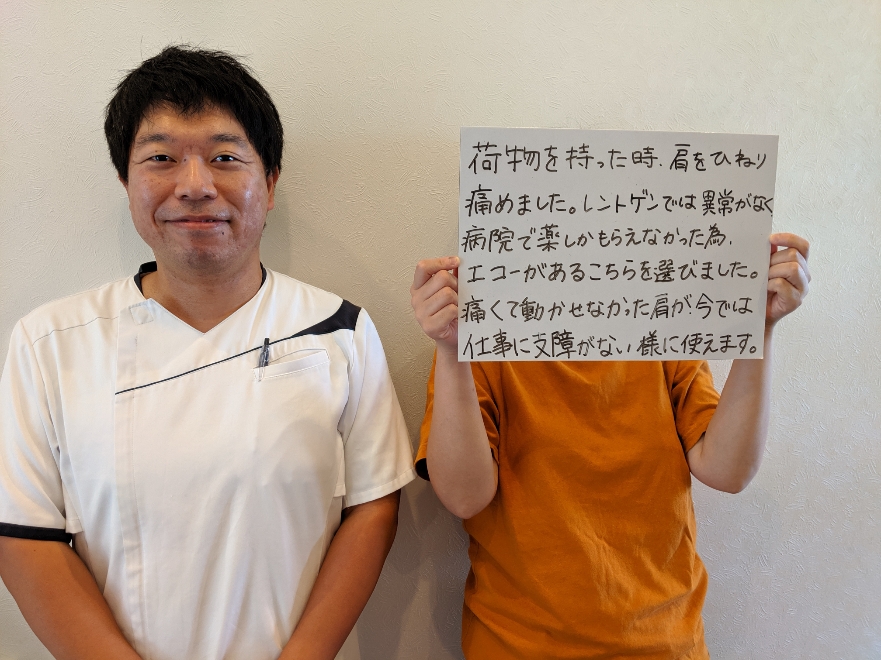 荷物を持った時、肩をひねり
痛めました。レントゲンでは異常がなく
病院で薬しかもらえなかった為、
エコーがあるこちらを選びました。
痛くて動かせなかった肩が、今では
仕事に支障がない様に使えます。